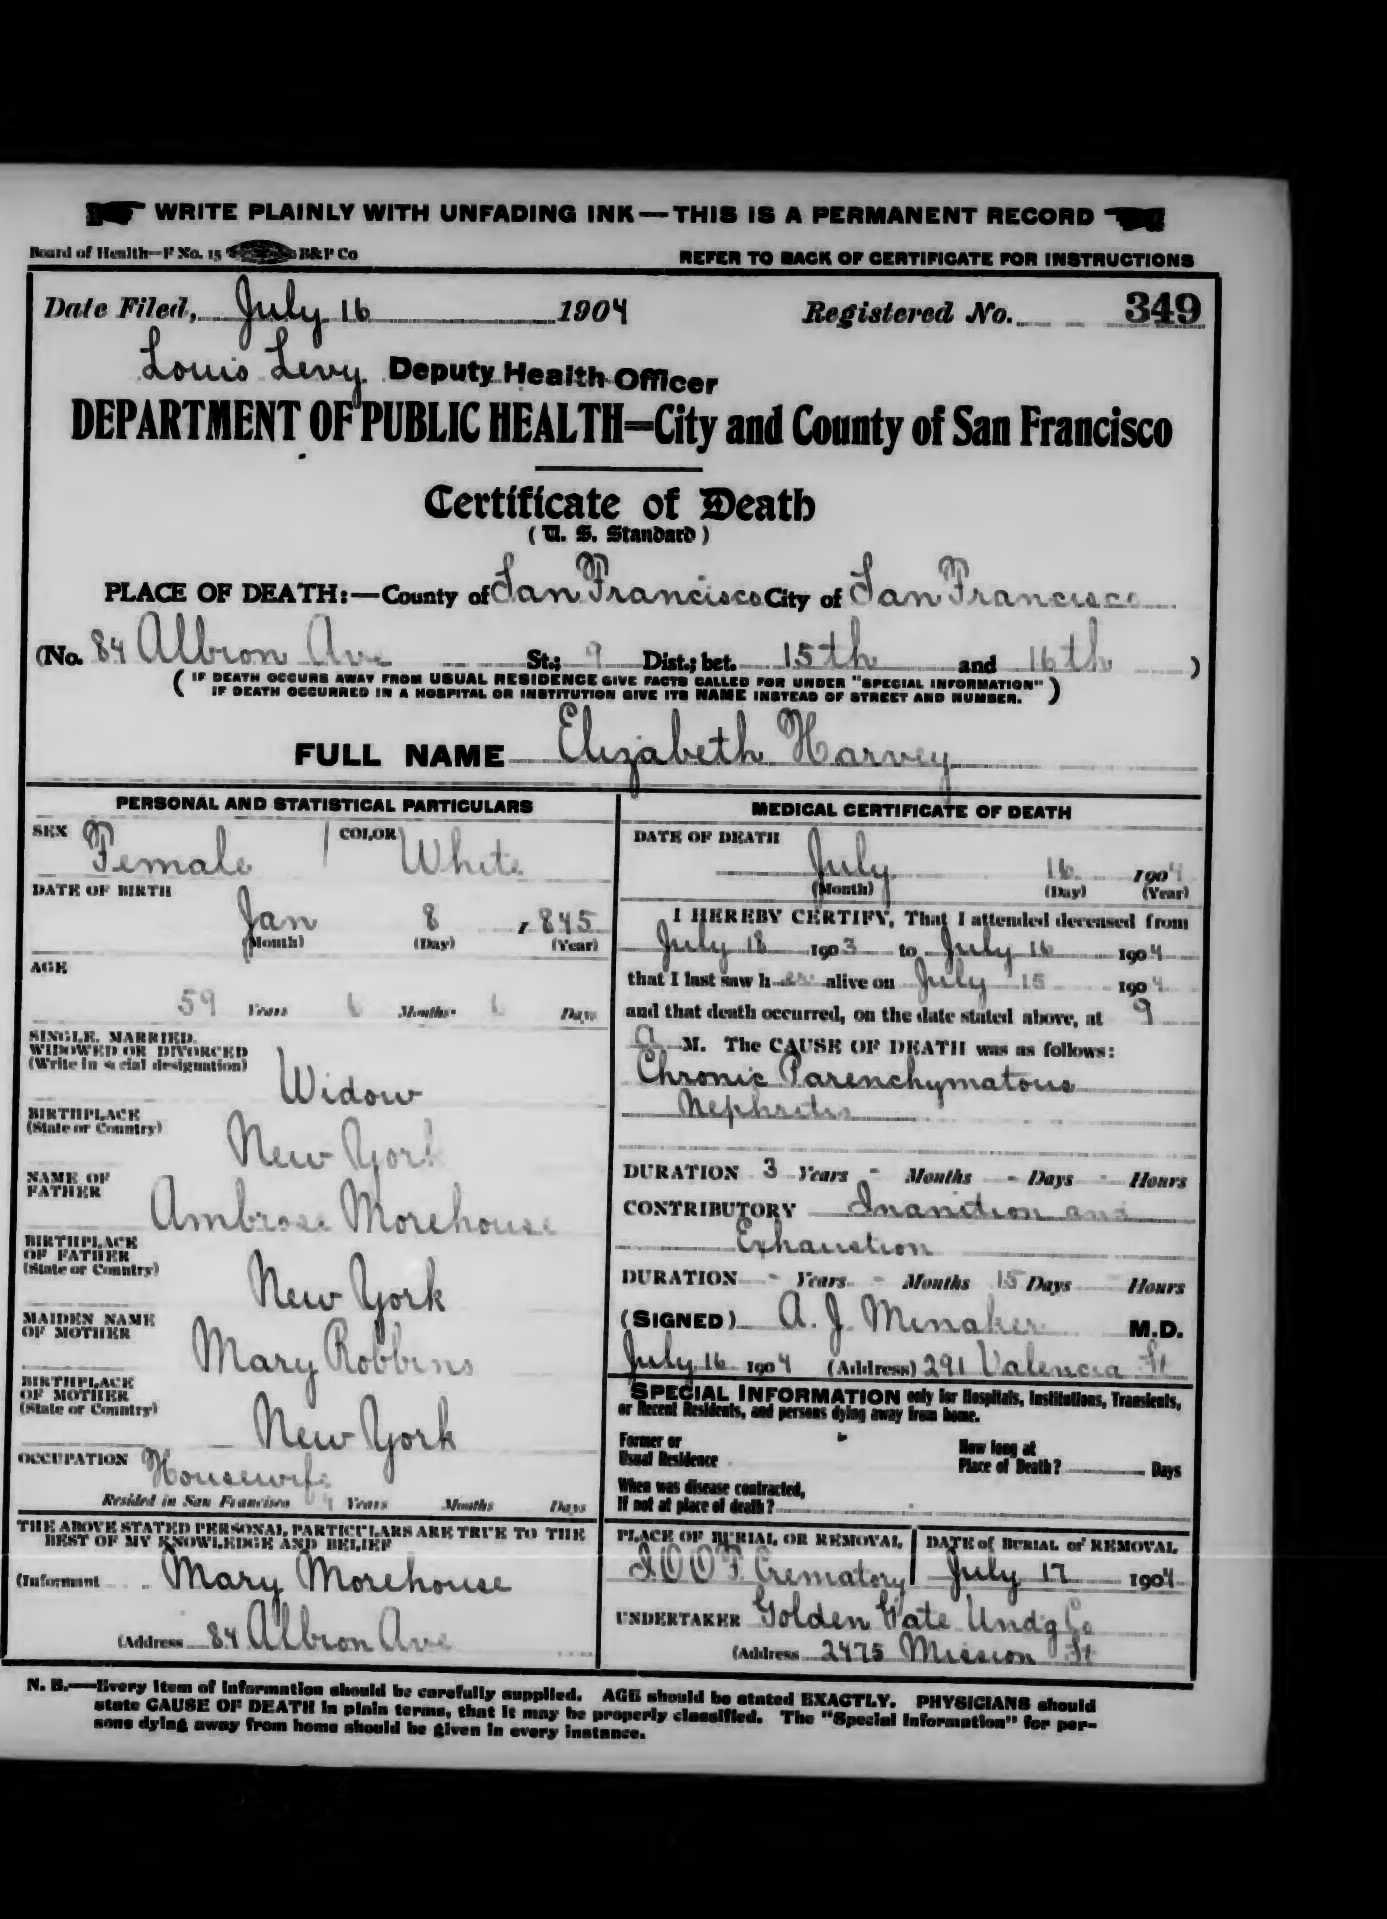 WRITE PLAINLY WITH UNFADING INK—THIS IS A PERMANENT RECORD
Board of Health—F No. 15 B&P Co REFER TO BACK OF CERTIFICATE FOR INSTRUCTIONS
Date Filed, July 16 1904 Registered No. 349
Louis Levy Deputy Health Officer
DEPARTMENT OF PUBLIC HEALTH=City and County of San Francisco
Certificate of Death
(U. S. Standard)
PLACE OF DEATH:—County of San Francisco City of San Francisco
(No. 84 Albion Ave St.; 9 Dist.; bet. 15th and 16th )
(IF DEATH OCCURS AWAY FROM USUAL RESIDENCE GIVE FACTS CALLED FOR UNDER "SPECIAL INFORMATION"
IF DEATH OCCURRED IN A HOSPITAL OR INSTITUTION GIVE ITS NAME INSTEAD OF STREET AND NUMBER.)
FULL NAME Elizabeth Harvey
PERSONAL AND STATISTICAL PARTICULARS
SEX Female COLOR White
DATE OF BIRTH
Jan 8 , 845
(Month) (Day) (Year)
AGE
59 Years 6 Months 6 Days
SINGLE, MARRIED,
WIDOWED OR DIVORCED
(Write in social designation)
Widow
BIRTHPLACE
(State or Country)
New York
NAME OF
FATHER
Ambrose Morehouse
BIRTHPLACE
OF FATHER
(State or Country)
New York
MAIDEN NAME
OF MOTHER
Mary Robbins
BIRTHPLACE
OF MOTHER
(State or Country)
New York
OCCUPATION Housewife
Resided in San Francisco Years Months Days
THE ABOVE STATED PERSONAL PARTICULARS ARE TRUE TO THE
BEST OF MY KNOWLEDGE AND BELIEF
(Informant Mary Morehouse
(Address 84 Albion Ave
MEDICAL CERTIFICATE OF DEATH
DATE OF DEATH
July 16 1904
(Month) (Day) (Year)
I HEREBY CERTIFY, That I attended deceased from
July 18 1903 to July 16 1904
that I last saw her alive on July 15 1904
and that death occurred, on the date stated above, at 9
a M. The CAUSE OF DEATH was as follows:
Chronic Parenchymatous
Nephritis
DURATION 3 Years - Months - Days - Hours
CONTRIBUTORY Inanition and
Exhaustion
DURATION - Years - Months 15 Days Hours
(SIGNED) A. J. Minaker M.D.
July 16 1904 (Address) 291 Valencia St
SPECIAL INFORMATION only for Hospitals, Institutions, Transients,
or Recent Residents, and persons dying away from home.
Former or
Usual Residence
How long at
Place of Death? Days
When was disease contracted,
If not at place of death?
PLACE OF BURIAL OR REMOVAL
I.O.O.F. Crematory
DATE of BURIAL or REMOVAL
July 17 1904
UNDERTAKER Golden Gate Undg Co
(Address 2475 Mission St
N. B.—Every item of information should be carefully supplied. AGE should be stated EXACTLY. PHYSICIANS should
state CAUSE OF DEATH in plain terms, that it may be properly classified. The "Special Information" for per-
sons dying away from home should be given in every instance.